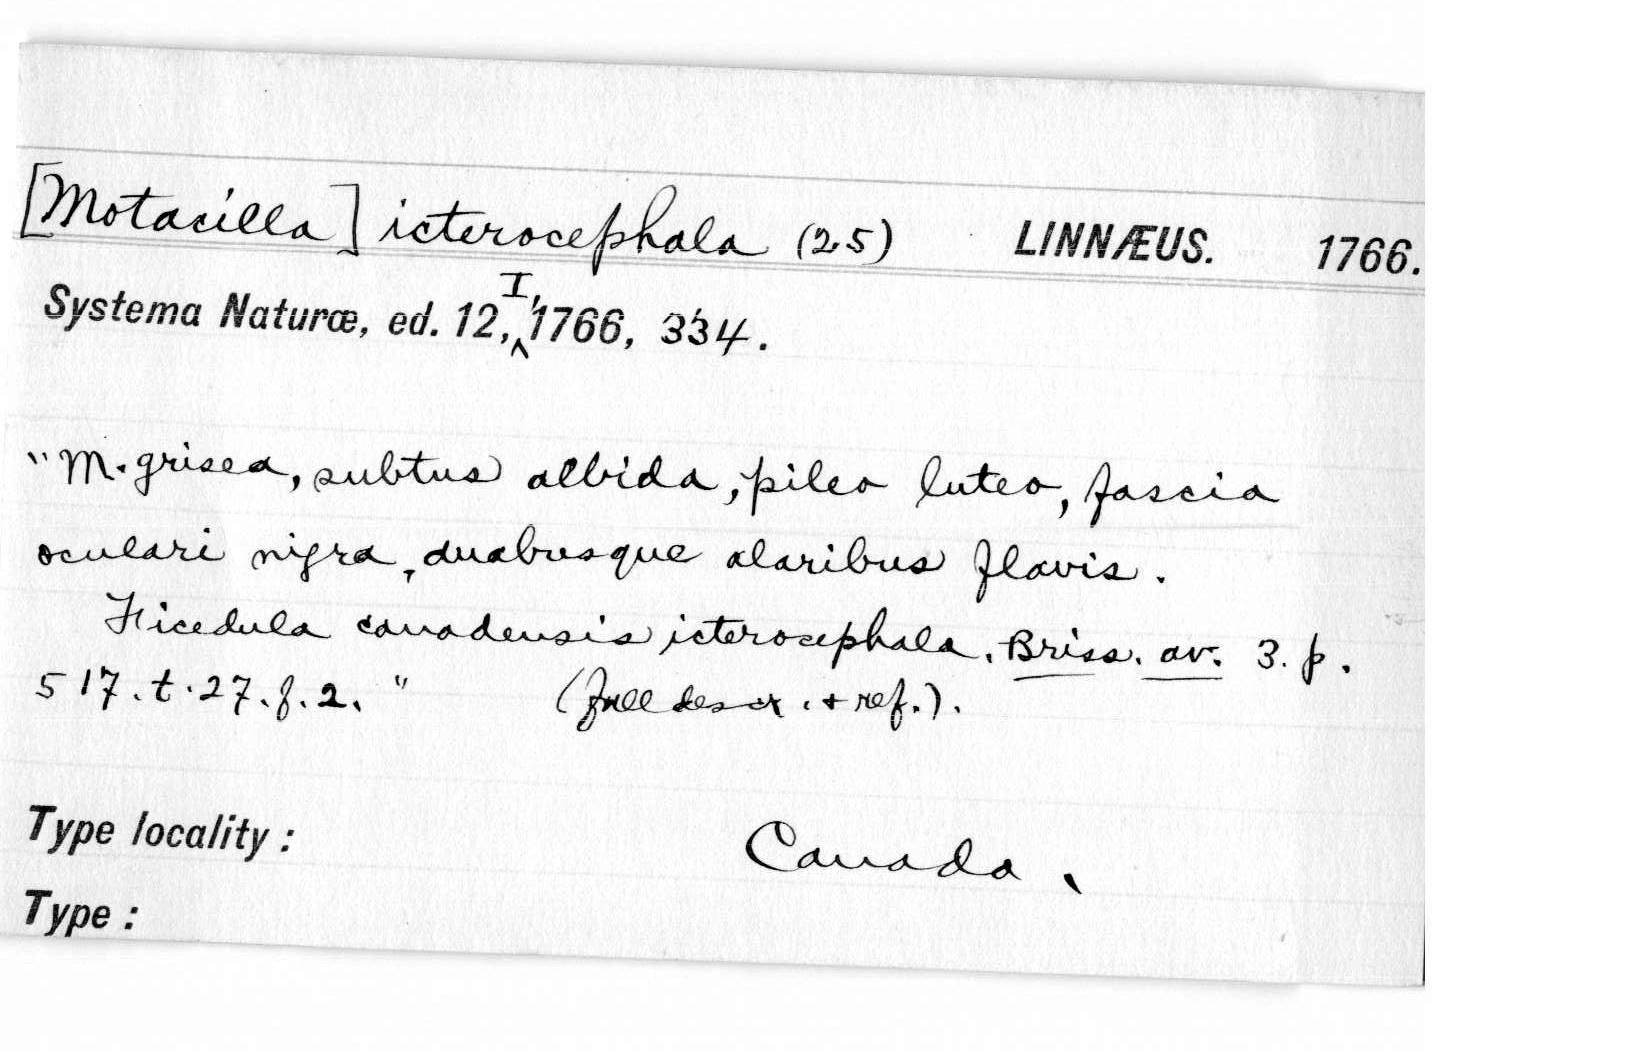 [Motacilla] icterocephala (25) LINNÆUS. 1766.
Systema Naturæ, ed. 12, I, 1766, 334.
"M. grisea, subtus albida, pileo luteo, fascia
oculari nigra, duabusque alaribus flavis.
Ficedula canadensis icterocephala. Briss. av. 3. p.
517. t. 27. f. 2." (full descr. + ref.).
Type locality: Canada.
Type: